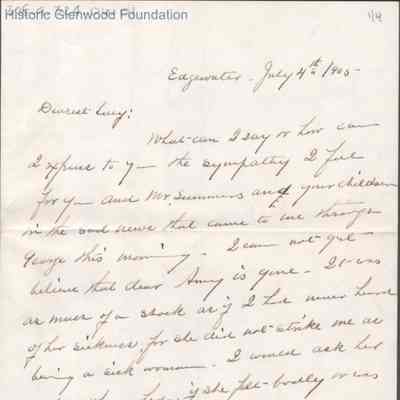 Historic Glenwood Foundation
1/4
Edgewater - July 4th 1905-
Dearest Lucy:
What can I say or how can
I express to you the sympathy I feel
for you and Mr Summers and your children
in the sad news that came to me through
George this morning. I can not yet
believe that dear Amy is gone. It was
as much of a shock as if I had never heard
of her sickness for she did not strike me as
being a sick woman. I would ask her
if she felt badly or was